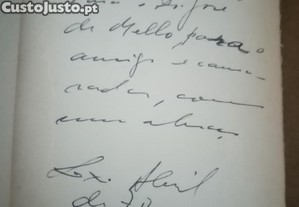 CustoJusto.pt
José
de Mello, para o
amigo e cama-
rada, com
um abraço,
Lx. Abril
de 70